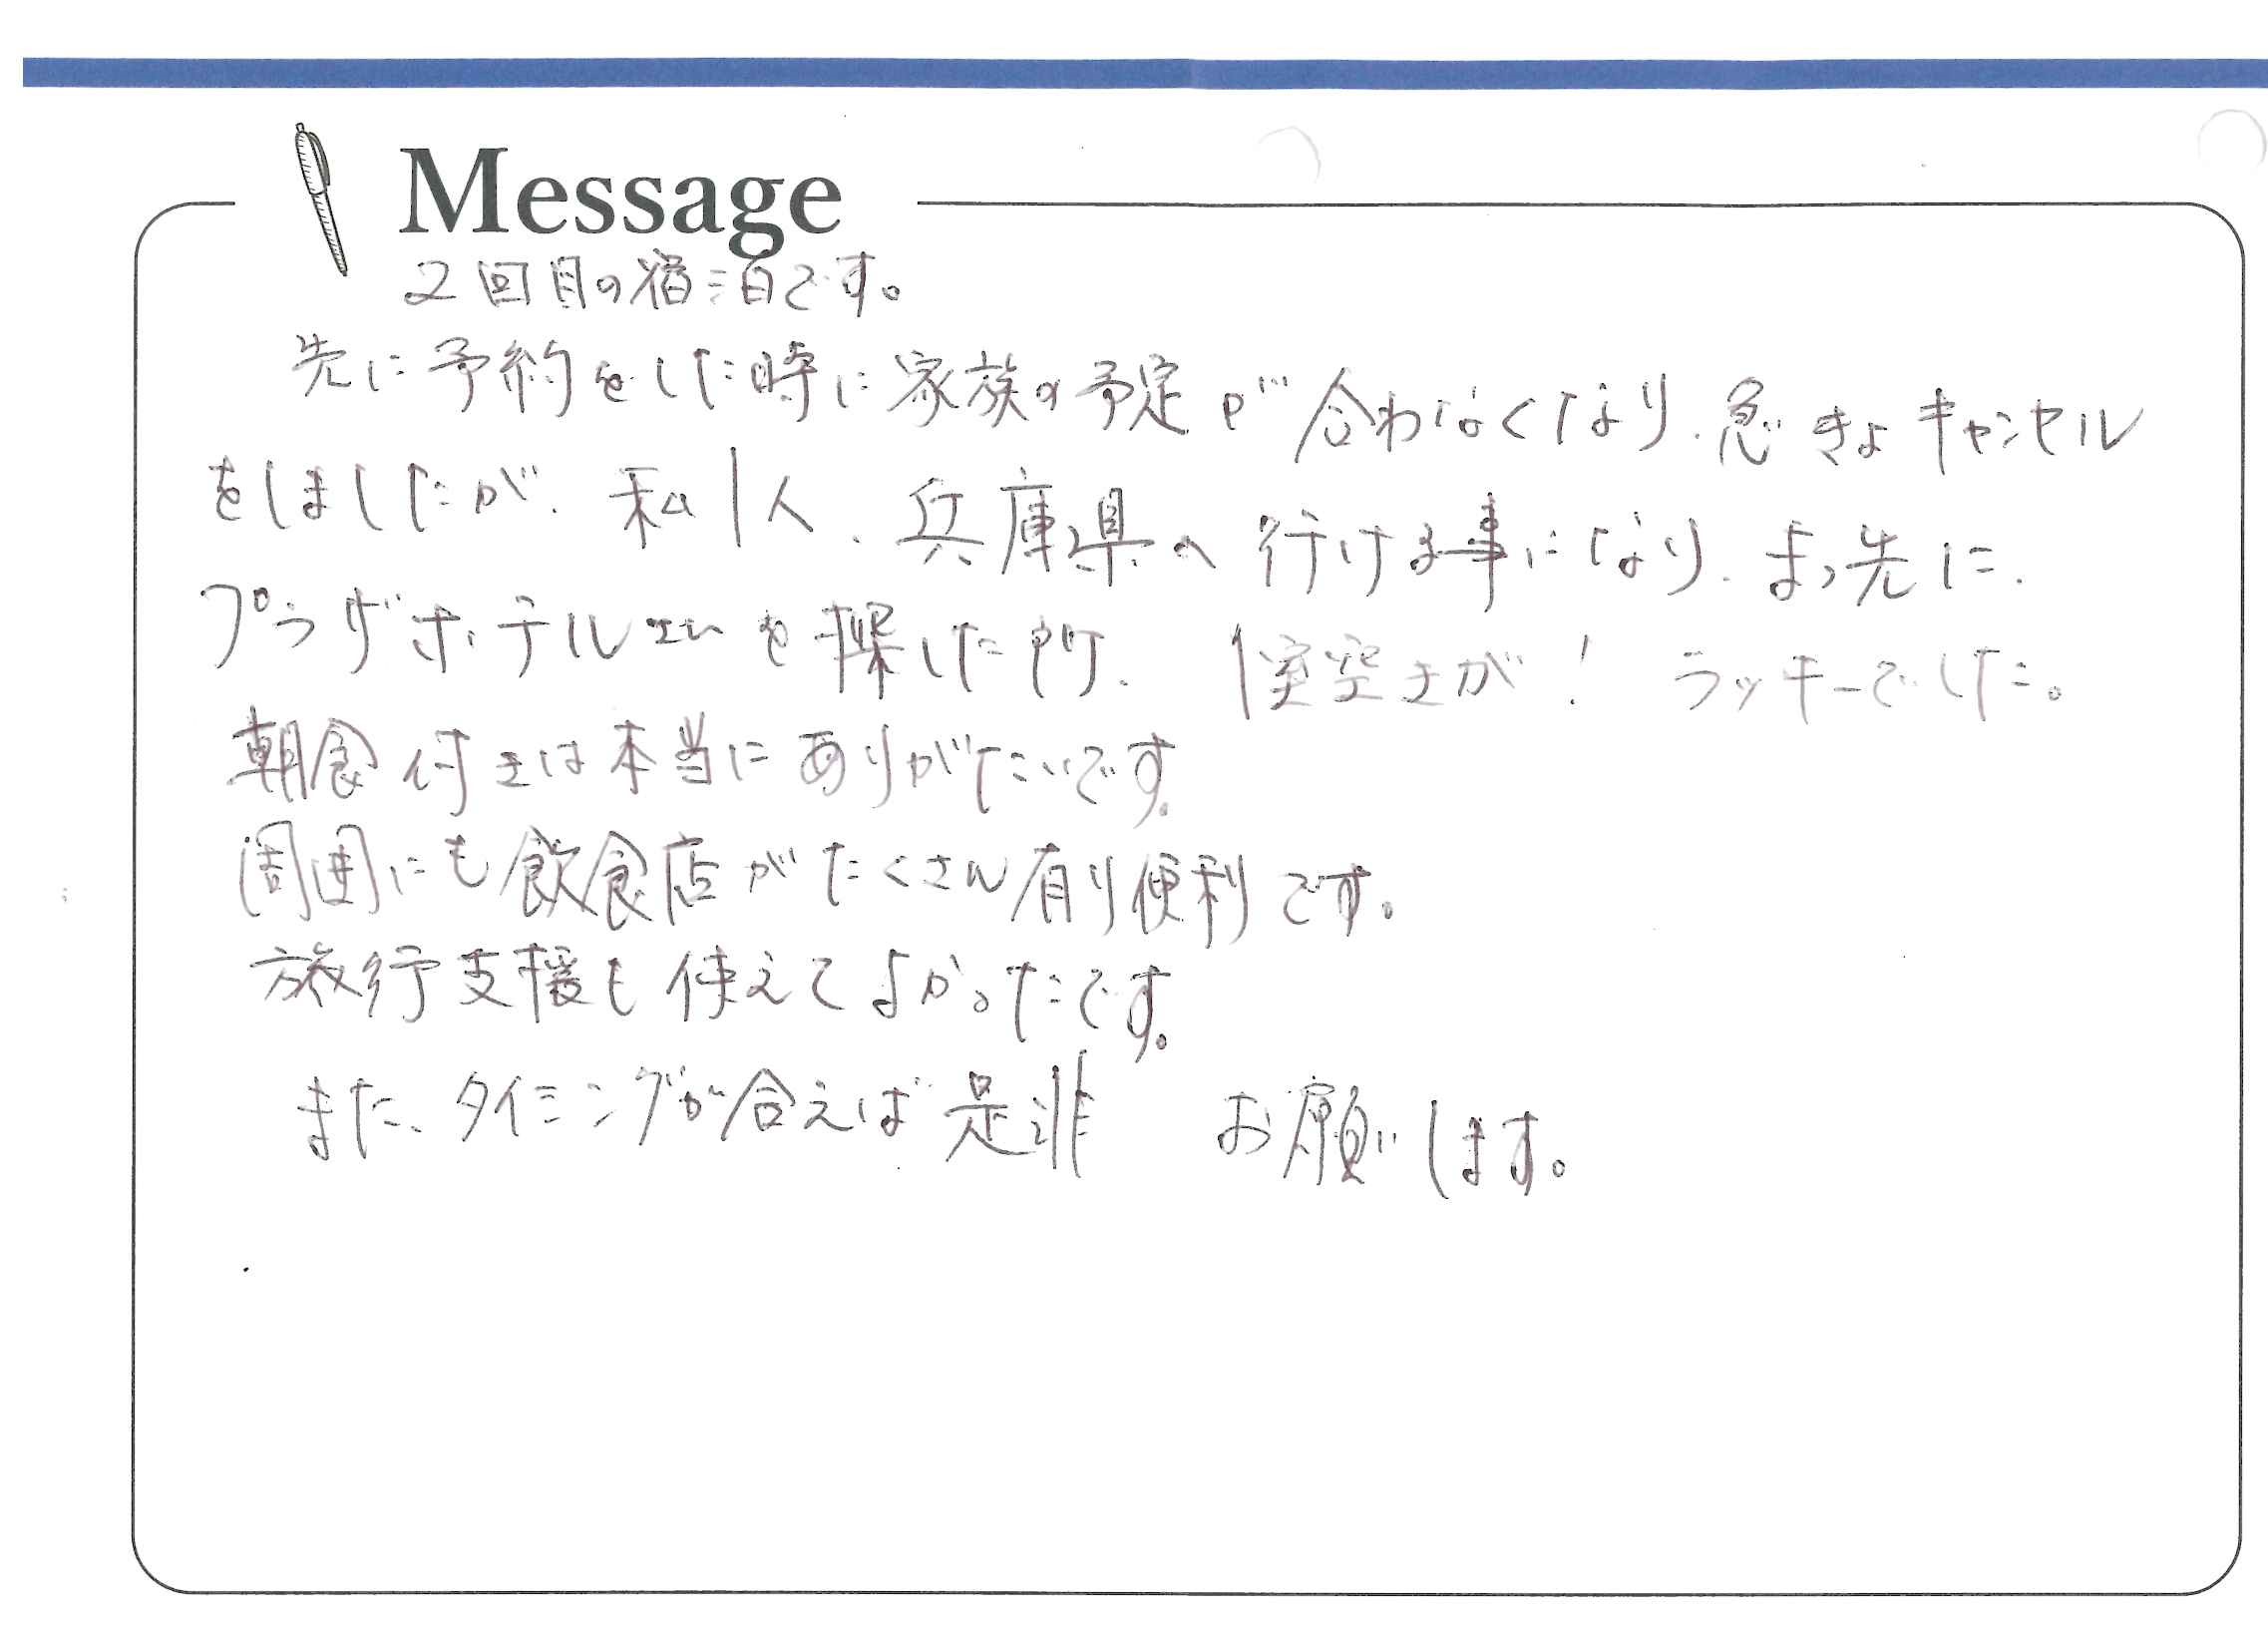 Message
2回目の宿泊です。
先に予約をした時に家族の予定が合わなくなり、急きょキャンセル
をしましたが、私1人、兵庫県へ行ける事になり、まっ先に、
プラザホテルさんを探した所、1室空きが! ラッキーでした。
朝食付きは本当にありがたいです。
周囲にも飲食店がたくさん有り便利です。
旅行支援も使えてよかったです。
また、タイミングが合えば是非 お願いします。